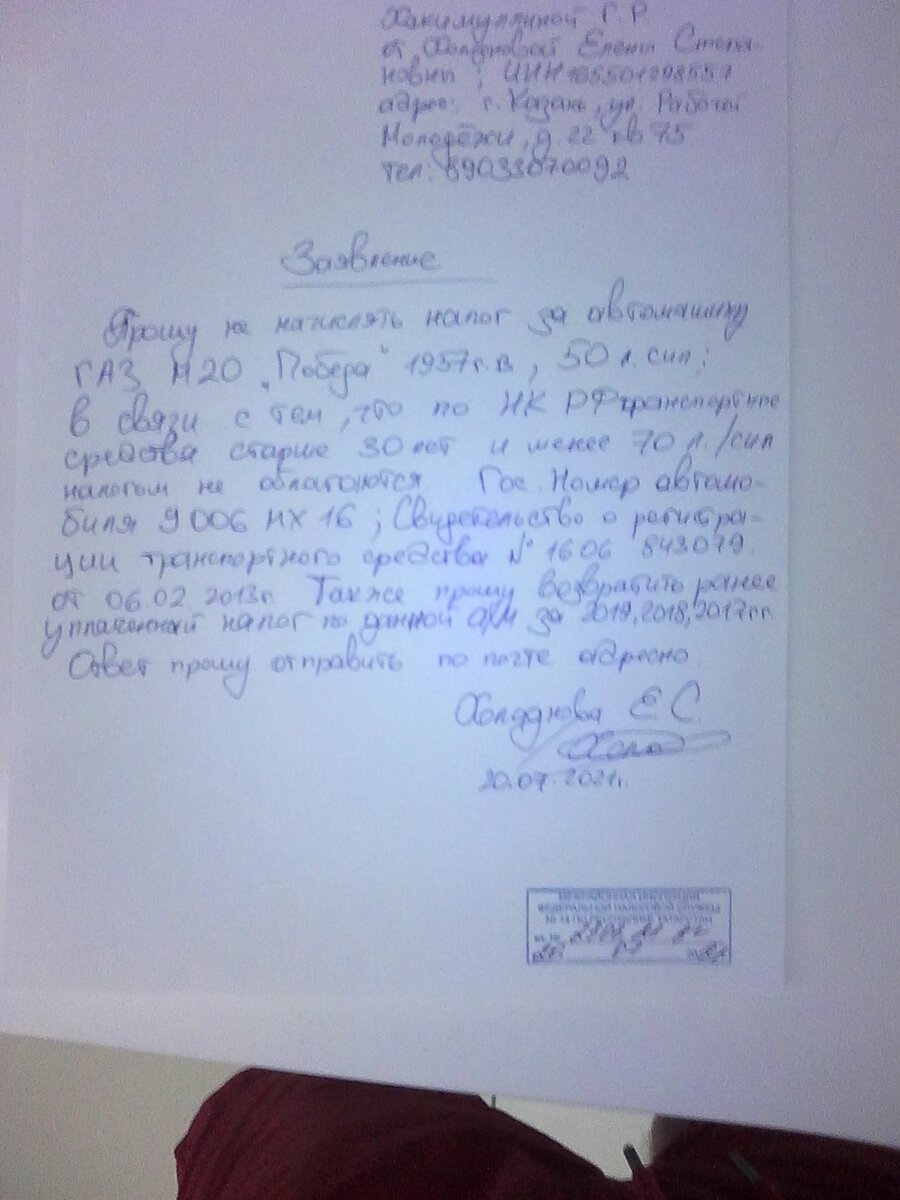 Хакимуллиной Г. Р.
от Холодновой Елены Степа-
новны, ИНН 165501298557
адрес: г. Казань, ул. Рабочей
Молодёжи, д. 22 кв 75
тел: 89033070092
Заявление
Прошу не начислять налог за автомашину
ГАЗ М20 „Победа" 1957г.в, 50 л. сил;
в связи с тем, что по НК РФ транспортные
средства старше 30 лет и менее 70 л./сил
налогом не облагаются. Гос. Номер автомо-
биля 9006 МХ 16; Свидетельство о регистра-
ции транспортного средства № 1606 843079
от 06.02.2013г. Также прошу возвратить ранее
уплаченный налог по данной а/м за 2019, 2018, 2017гг.
Ответ прошу отправить по почте адресно
Холоднова Е С.
20.07.2021г.
МЕЖРАЙОННАЯ ИНСПЕКЦИЯ
ФЕДЕРАЛЬНОЙ НАЛОГОВОЙ СЛУЖБЫ
№ 14 ПО РЕСПУБЛИКЕ ТАТАРСТАН